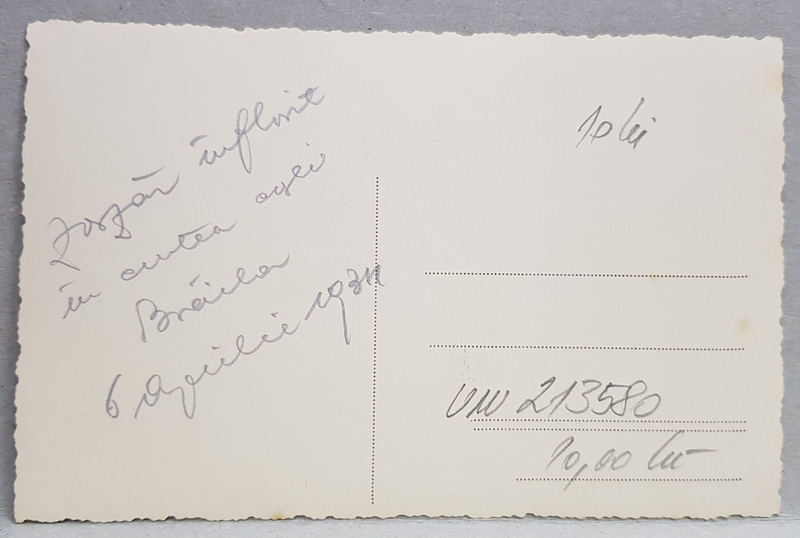 Zarzăr înflorit
în curtea casei
Brăila
6 Aprilie 1934
10 lei
VIW 213580
10,00 lei